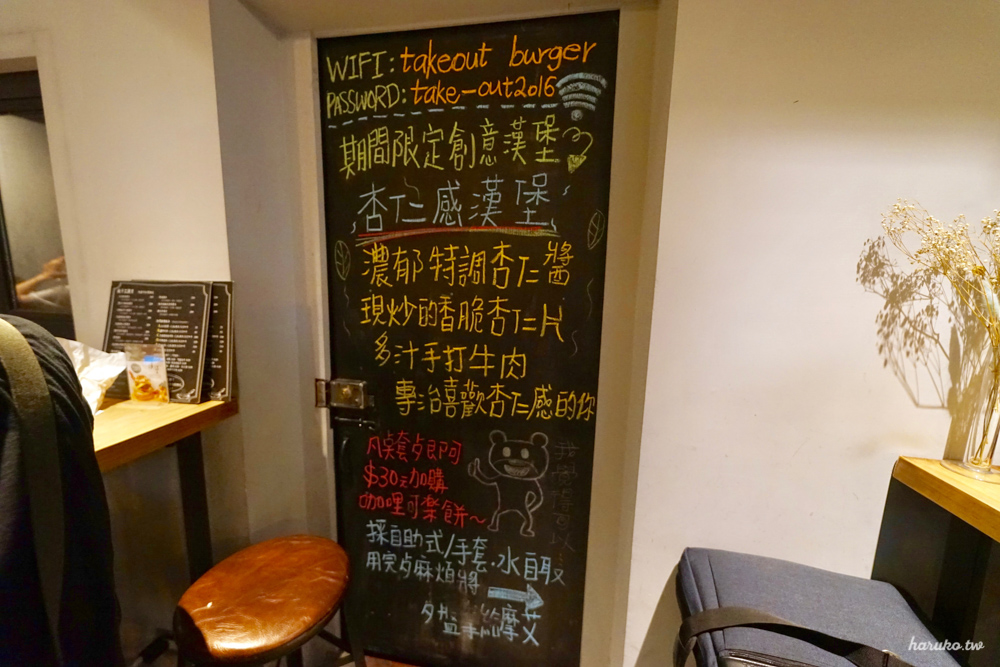 WIFI: takeout burger
PASSWORD: take-out2016
期間限定創意漢堡
杏仁感漢堡
濃郁特調杏仁醬
現炒的香脆杏仁片
多汁手打牛肉
專治喜歡杏仁感的你
凡與套歺即可
$30元加購
咖哩可樂餅~
我覺得可以
採自助式/手套·水自取
用完歺麻煩將
摩艾
haruko.tw